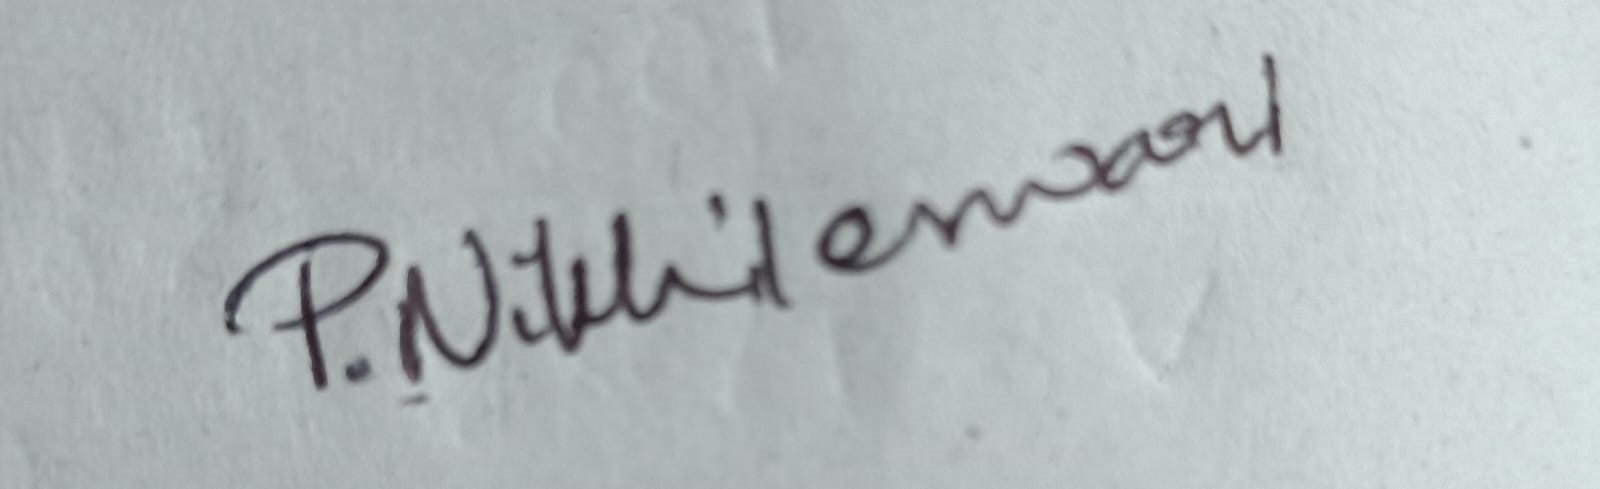 P. Nikhileswari